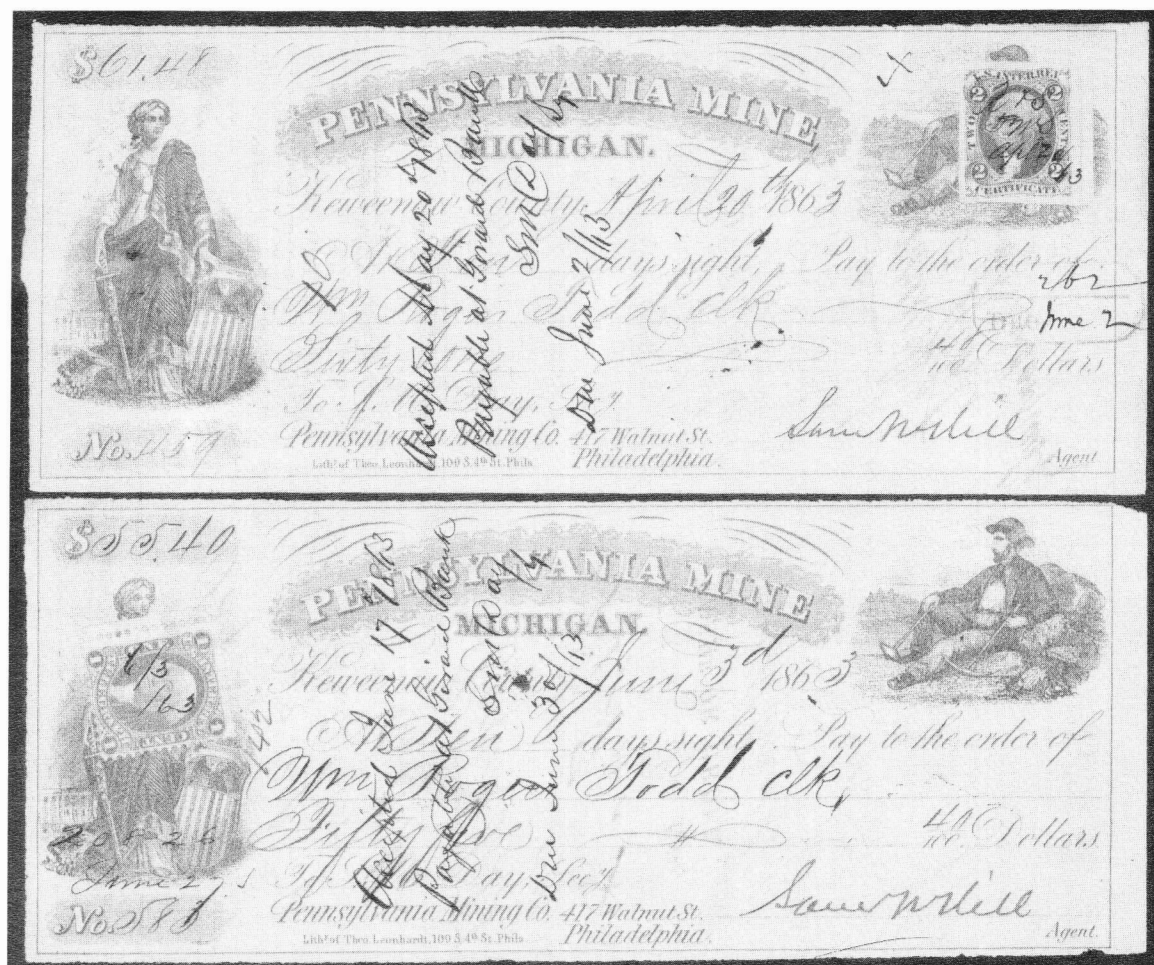 $61.48
PENNSYLVANIA MINE,
MICHIGAN.
Keweenaw County, April 20th 1863
At Ten days sight, Pay to the order of
Wm Roger Todd Clk
Sixty One 48/100 Dollars
Due June 2
262
To S. M. Day, Secy.
Pennsylvania Mining Co. 417 Walnut St.
Philadelphia.
Sam W Hill
Agent
No. 459
Lithd of Theo. Leonhardt, 109 S. 4th St. Phila.
Accepted May 20 1863
Payable at Girard Bank
S M Day
Due June 2/63
U.S. INTER REV
TWO CENTS
2
2
2
CERTIFICATE
$55.40
PENNSYLVANIA MINE
MICHIGAN.
Keweenaw County June 3d 1863
At Ten days sight, Pay to the order of
Wm Roger Todd Clk,
Fifty five 40/100 Dollars
To S. M. Day, Secy.
Pennsylvania Mining Co. 417 Walnut St.
Philadelphia.
Sam W Hill
Agent.
Lithd of Theo. Leonhardt, 109 S. 4th St. Phila.
Accepted June 17 1863
Payable at Girard Bank
S M Day
Due June 30/63